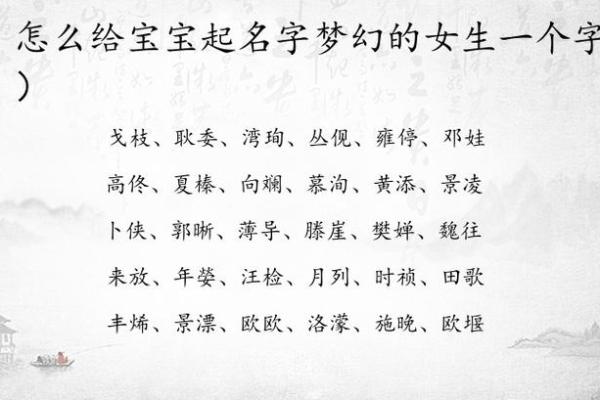 怎么给宝宝起名字梦幻的女生一个字
）
戈枝、耿委、湾珣、丛俔、雍停、邓娃
高佟、夏榛、向斓、慕洵、黄添、景凌
卜侠、郭晰、薄导、滕崖、樊婵、魏往
来放、年蓥、汪检、月列、时祯、田歌
丰烯、景漂、欧欧、洛濛、施晚、欧堰